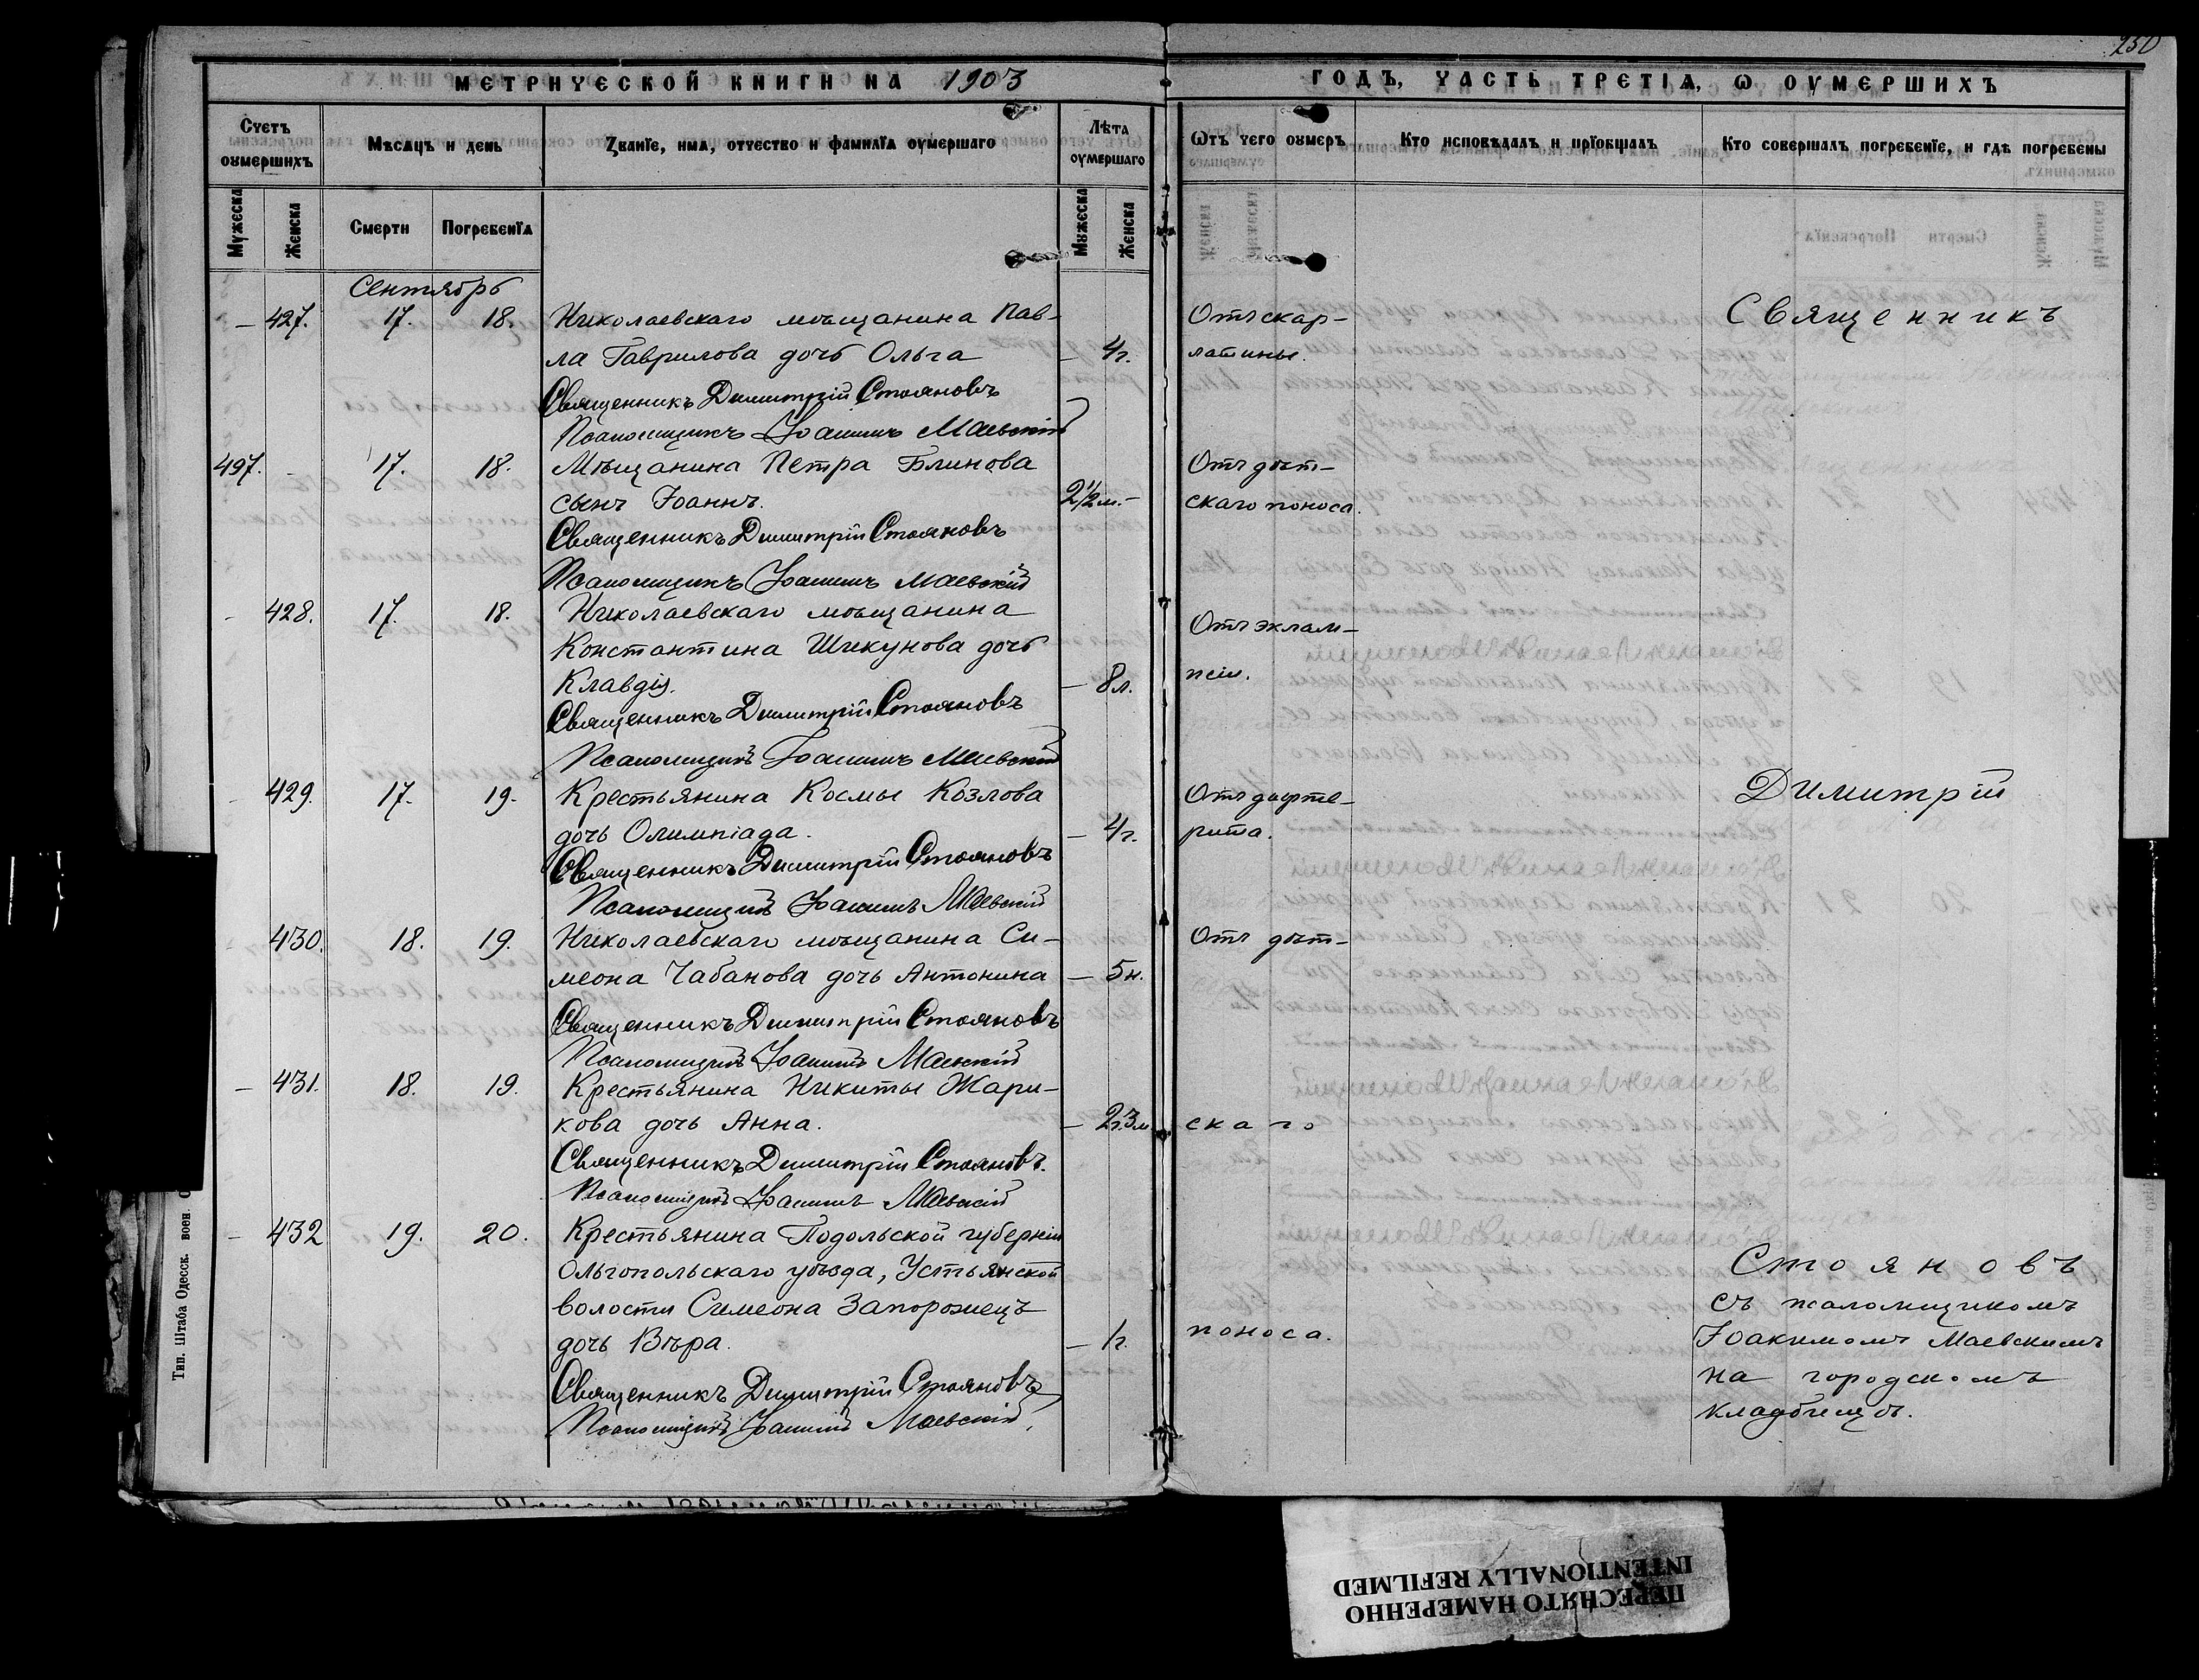 250
МЕТРИЧЕСКОЙ КНИГИ НА 1903
ГОДЪ, ЧАСТЬ ТРЕТІѦ, Ѡ ОУМЕРШИХЪ
Счетъ оумершихъ
Мѣсѧцъ и день
Званїе, имѧ, отчество и фамилїѧ оумершаго
Лѣта оумершаго
Ѿтъ чего оумеръ
Кто исповѣдалъ и прїобщалъ
Кто совершалъ погребенїе, и гдѣ погребены
Мужеска
Женска
Смерти
Погребенїѧ
Мужеска
Женска
Сентябрь
— 427. 17. 18. Николаевскаго мѣщанина Пав-
ла Гаврилова дочь Ольга — 4 г.
Священникъ Димитрій Стояновъ
Псаломщикъ Іоакимъ Маевскій
497. - 17. 18. Мѣщанина Петра Блинова
сынъ Іоаннъ. 2 1/2 м. -
Священникъ Димитрій Стояновъ
Псаломщикъ Іоакимъ Маевскій
- 428. 17. 18. Николаевскаго мѣщанина
Константина Шикунова дочь
Клавдія. — 8 л.
Священникъ Димитрій Стояновъ
Псаломщикъ Іоакимъ Маевскій
- 429. 17. 19. Крестьянина Космы Козлова
дочь Олимпіада. — 4 г.
Священникъ Димитрій Стояновъ
Псаломщикъ Іоакимъ Маевскій
- 430. 18. 19. Николаевскаго мѣщанина Си-
меона Чабанова дочь Антонина — 5 н.
Священникъ Димитрій Стояновъ
Псаломщикъ Іоакимъ Маевскій
— 431. 18. 19. Крестьянина Никиты Жари-
кова дочь Анна. — 2 г. 3 м.
Священникъ Димитрій Стояновъ.
Псаломщикъ Іоакимъ Маевскій
- 432 19. 20. Крестьянина Подольской губерніи
Ольгопольскаго уѣзда, Устьянской
волости Симеона Запорожецъ
дочь Вѣра. — 1 г.
Священникъ Димитрій Стояновъ
Псаломщикъ Іоакимъ Маевскій
Отъ скар-
латины.
Отъ дѣт-
скаго поноса.
Отъ эклам-
псіи.
Отъ дифте-
рита.
Отъ дѣт-
скаго
поноса.
Священникъ
Димитрій
Стояновъ
съ псаломщикомъ
Іоакимомъ Маевскимъ
на городскомъ
кладбищѣ.
Тип. Штаба Одесск. воен.
ПЕРЕСНЯТО НАМЕРЕННО
INTENTIONALLY REFILMED